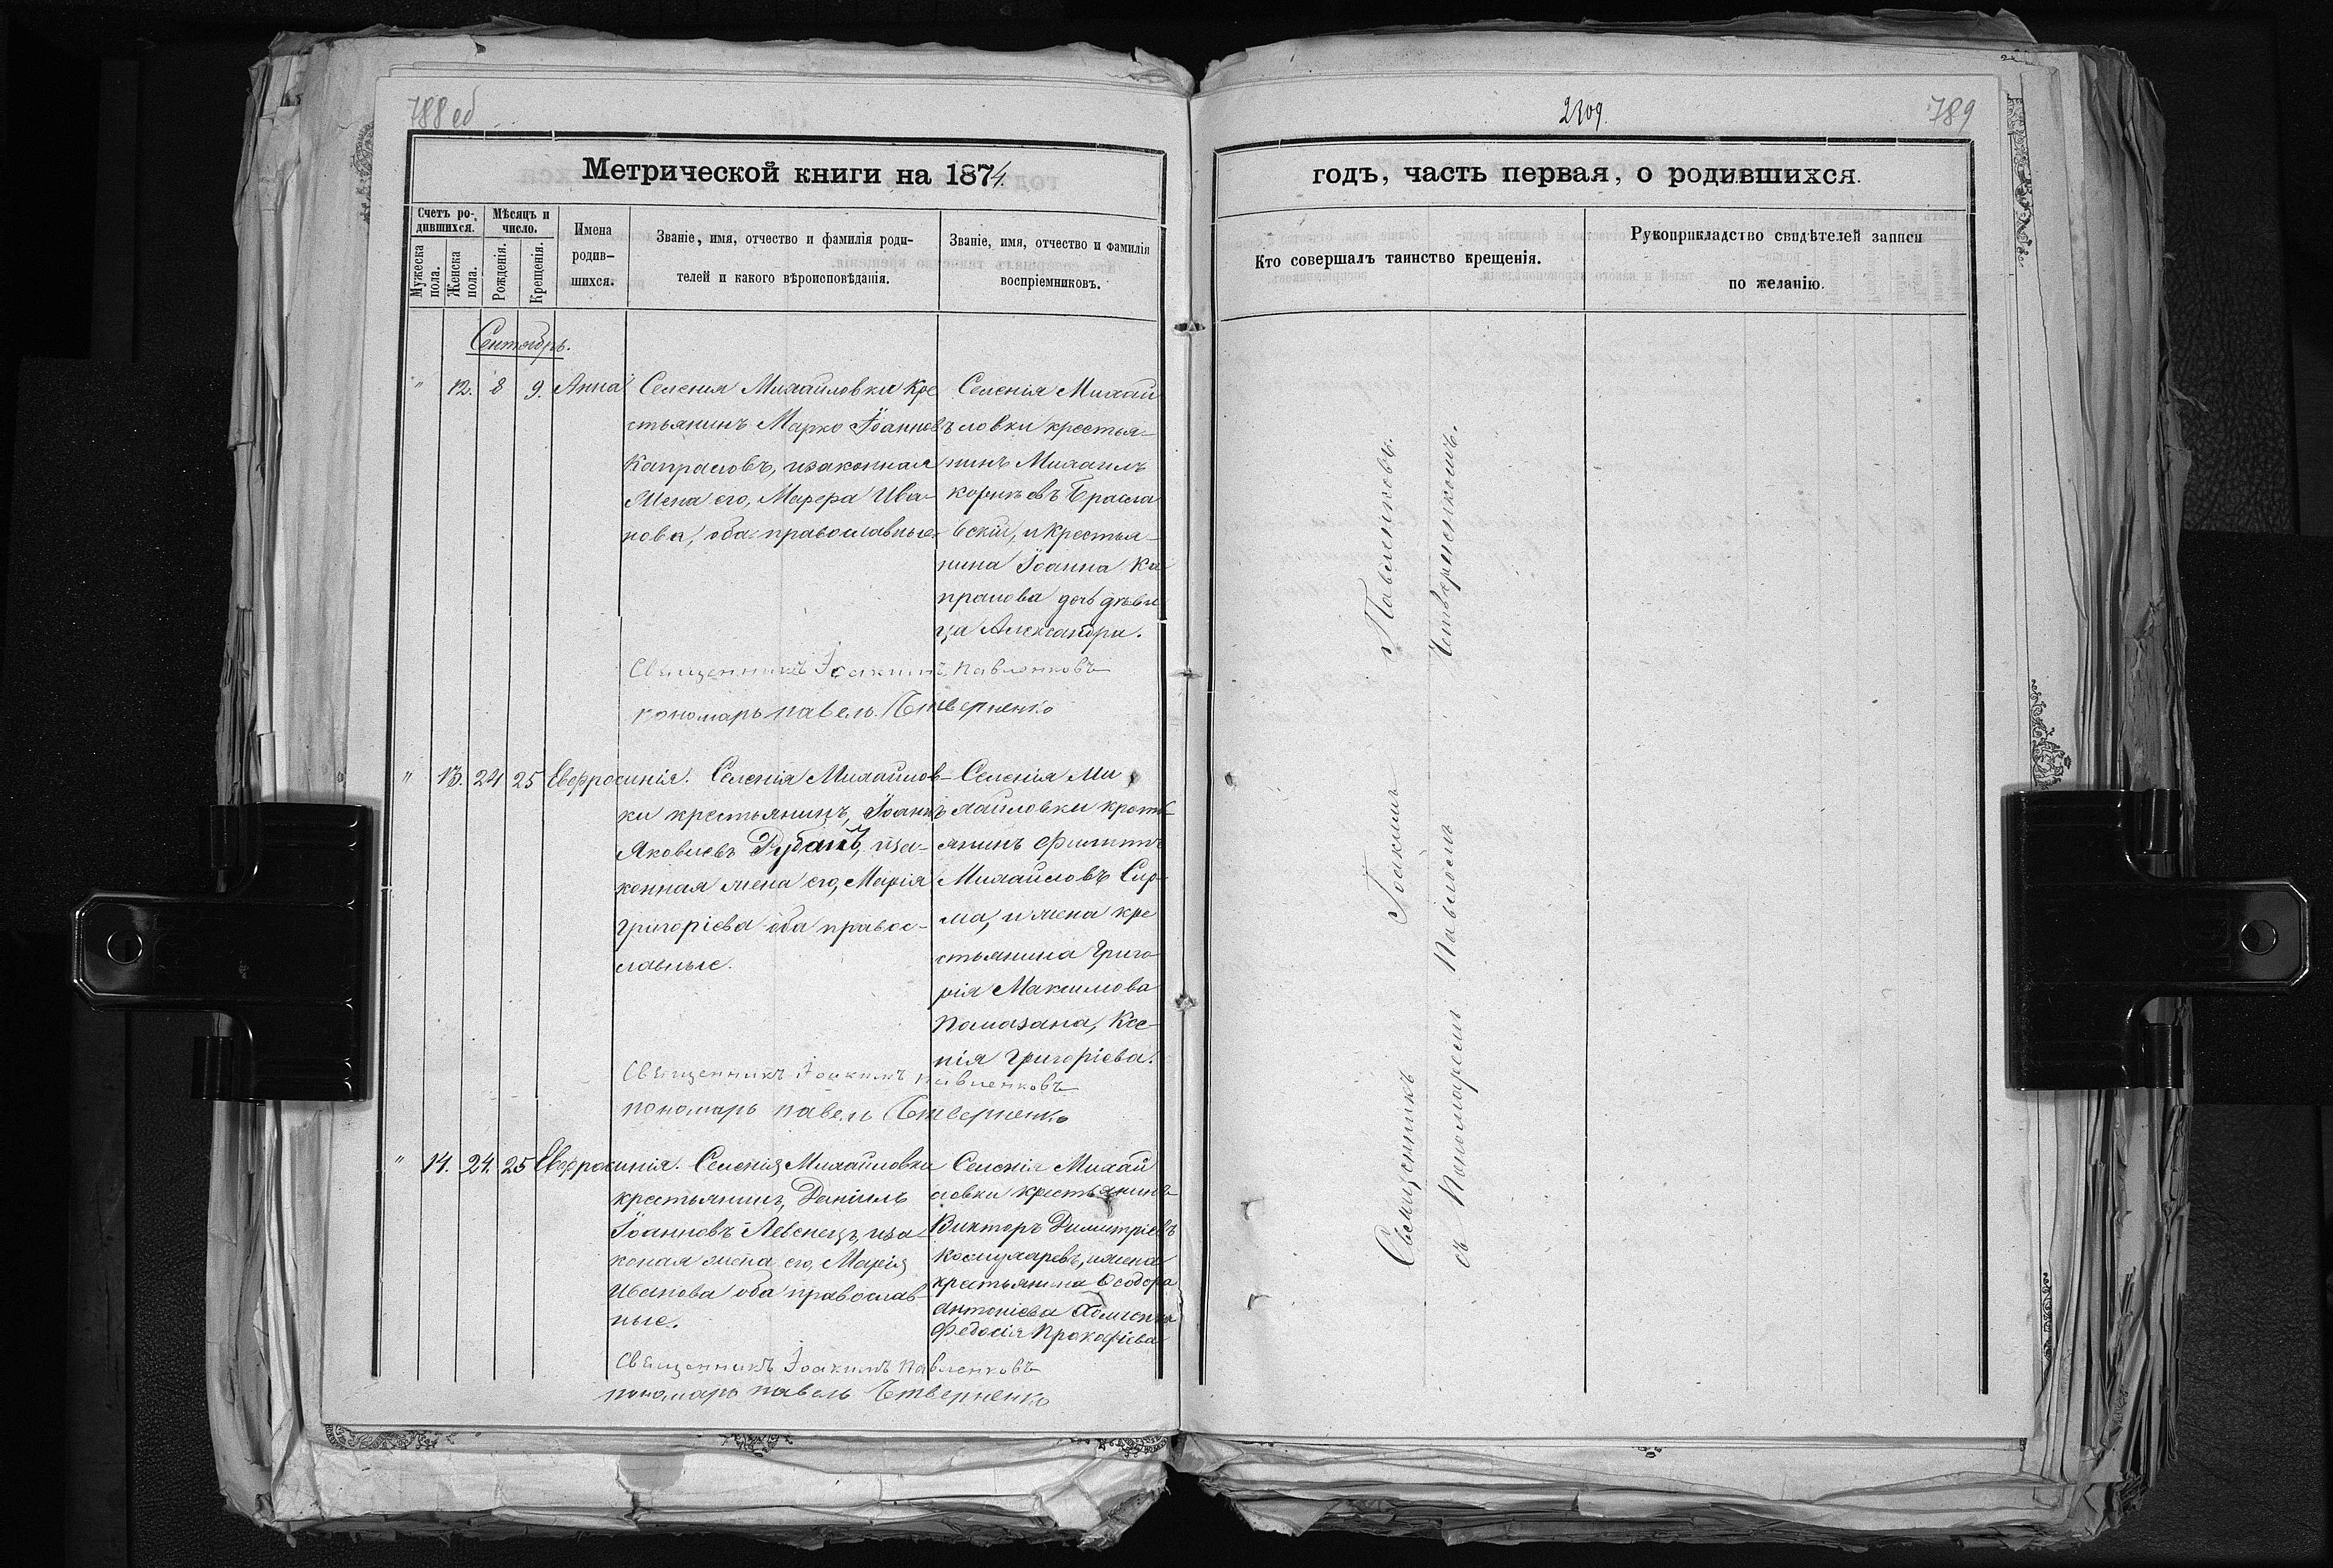 788 об
Метрической книги на 1874.
Счетъ ро-
дившихся.
Мужеска пола.
Женска пола.
Мѣсяцъ и
число.
Рожденія.
Крещенія.
Имена
родив-
шихся.
Званіе, имя, отчество и фамилія роди-
телей и какого вѣроисповѣданія.
Званіе, имя, отчество и фамилія
воспріемниковъ.
Сентябрь.
" 12. 8 9. Анна
Селенія Михайловки кре
стьянинъ Марко Іоанновъ
Капраловъ, изаконная
жена его, Марфа Ива-
нова, оба православные.
Селенія Михай
ловки крестья-
нинъ Михаилъ
Бракла
вскій, и крестья-
нина Іоанна Ка
пралова дочь дѣви
ца Александра.
Священникъ Іоакимъ Павленковъ
пономарь павелъ Четверненко
" 13. 24 25 Евфросинія.
Селенія Михайлов-
ки крестьянинъ, Іоаннъ
Яковлевъ Рубанъ, иза-
конная жена его, Марія
Григоріева оба правос-
лавные.
Селенія Ми
хайловки крестъ-
янинъ Филиппъ
Михайловъ Сир-
ма, и жена кре
стьянина Григо
рія Максимова
Помазана, Ксе-
нія Григоріева.
Священникъ Іоакимъ Павленковъ
пономарь павелъ Четверненко
" 14. 24. 25 Евфросинія.
Селенія Михайловки
крестьянинъ, Даніилъ
Іоанновъ Левенецъ, иза
коная жена его, Марія
Иванова оба православ-
ные.
Селенія Михай
ловки крестьянинъ
Викторъ Димитріевъ
ижена
крестьянина Ѳеодора
Антоніева
Федосія Прокафіева
Священникъ Іоакимъ Павленковъ
пономарь павелъ Четверненко
2309.
789
годъ, часть первая, о родившихся.
Кто совершалъ таинство крещенія.
Рукоприкладство свидѣтелей записи
по желанію.
Священникъ Іоакимъ Павленковъ.
съ Пономаремъ Павломъ Четверненкомъ.